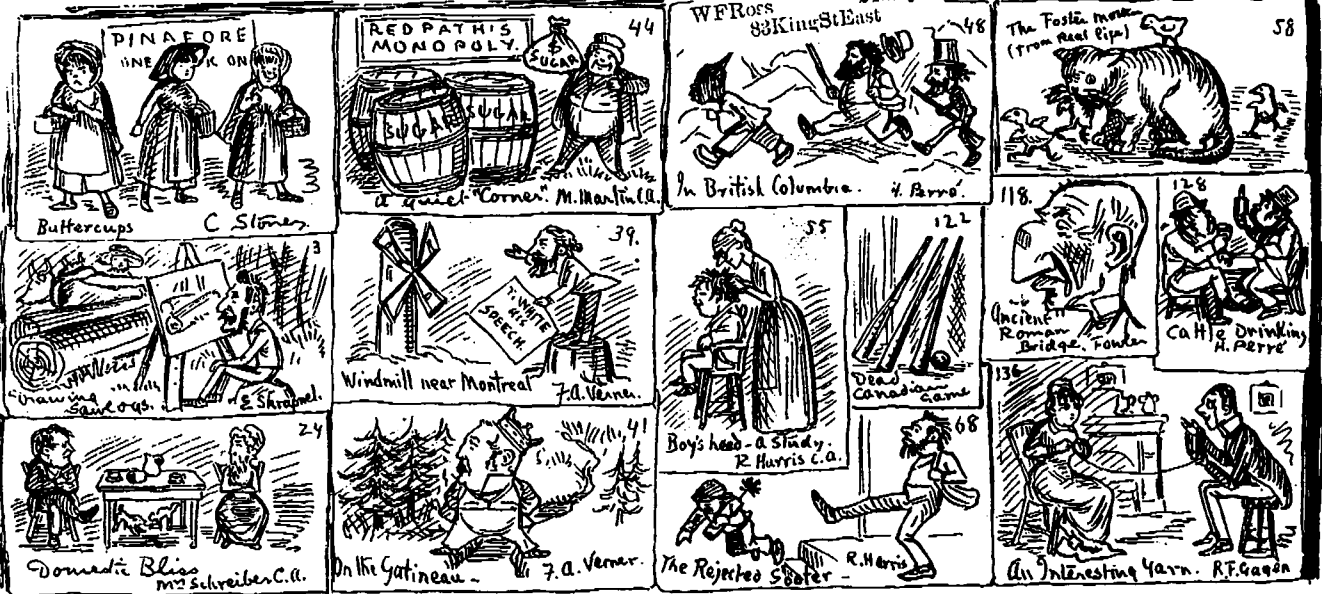 PINAFORE
Buttercups C Stones.
44
REDPATHS
MONOPOLY.
$
SUGAR
SUGAR
SUGAR
A quiet "Corner." M. Martin C.A.
WF Ross
83 King St East
48
In British Columbia. H. Perré.
58
The Foster Mother
(From Real life)
3
Drawing
Saw Logs. E Shrapnel.
39.
T. WHITE
HIS
SPEECH.
Windmill near Montreal F.A. Verner.
55
Boy's head - a study.
R Harris C.A.
122
Dead
Canadian
Game
118.
"Ancient"
Roman
Bridge. Fowler
128
Cattle Drinking
H. Perré
24
Domestic Bliss
Mrs Schreiber C.A.
41
On the Gatineau - F.A. Verner.
68
The Rejected Sooter -
R. Harris
136
An Interesting Yarn. R.F. Gagen